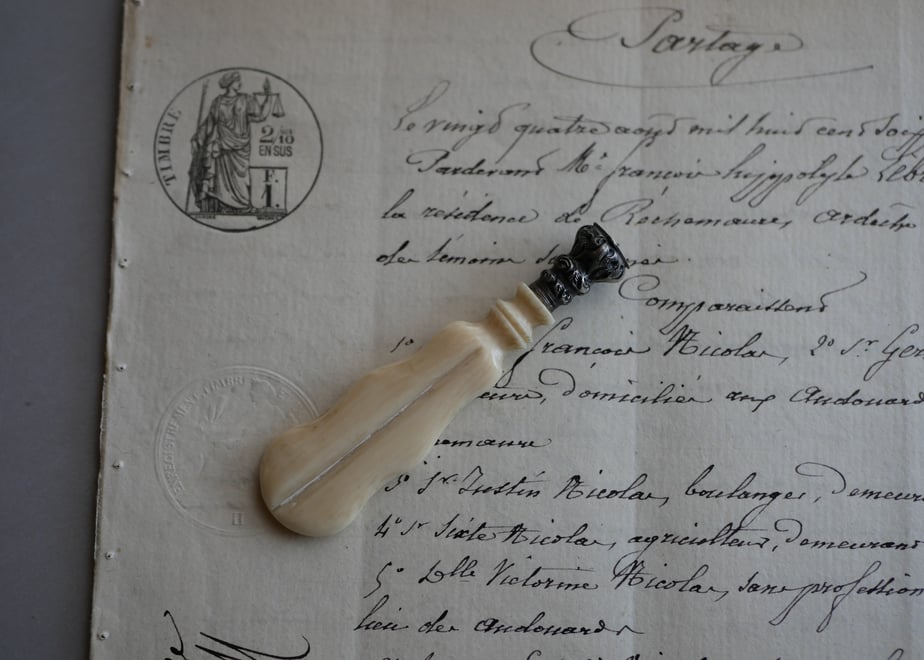 Partage
TIMBRE
2/10
EN SUS
F.
1.
Le vingt quatre août mil huit cent
Pardevant Me francois hyppolyte
la résidence de Rochemaure, ardèche
des témoins
Comparaissent
1° francois Nicolas, 2° Sr
domicilié aux Audouards
emaure
3° Sr Justin Nicolas, boulanger, demeur
4° Sr Sixte Nicolas, agriculteur, demeurant
5° Delle Victorine Nicolas, sans profession
lieu des Audouards